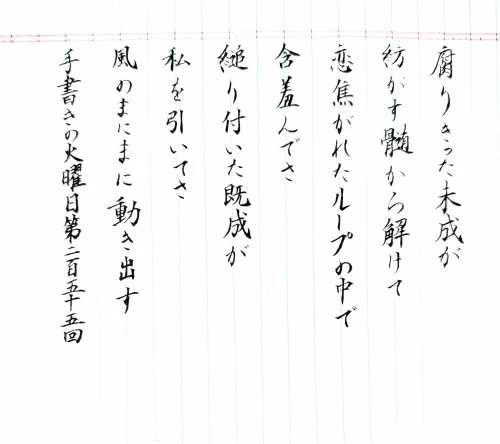 腐りきった未成が
紡がす髄から解けて
恋焦がれたループの中で
含羞んでさ
縋り付いた既成が
私を引いてさ
風のまにまに動き出す
手書きの火曜日第二百五十五回